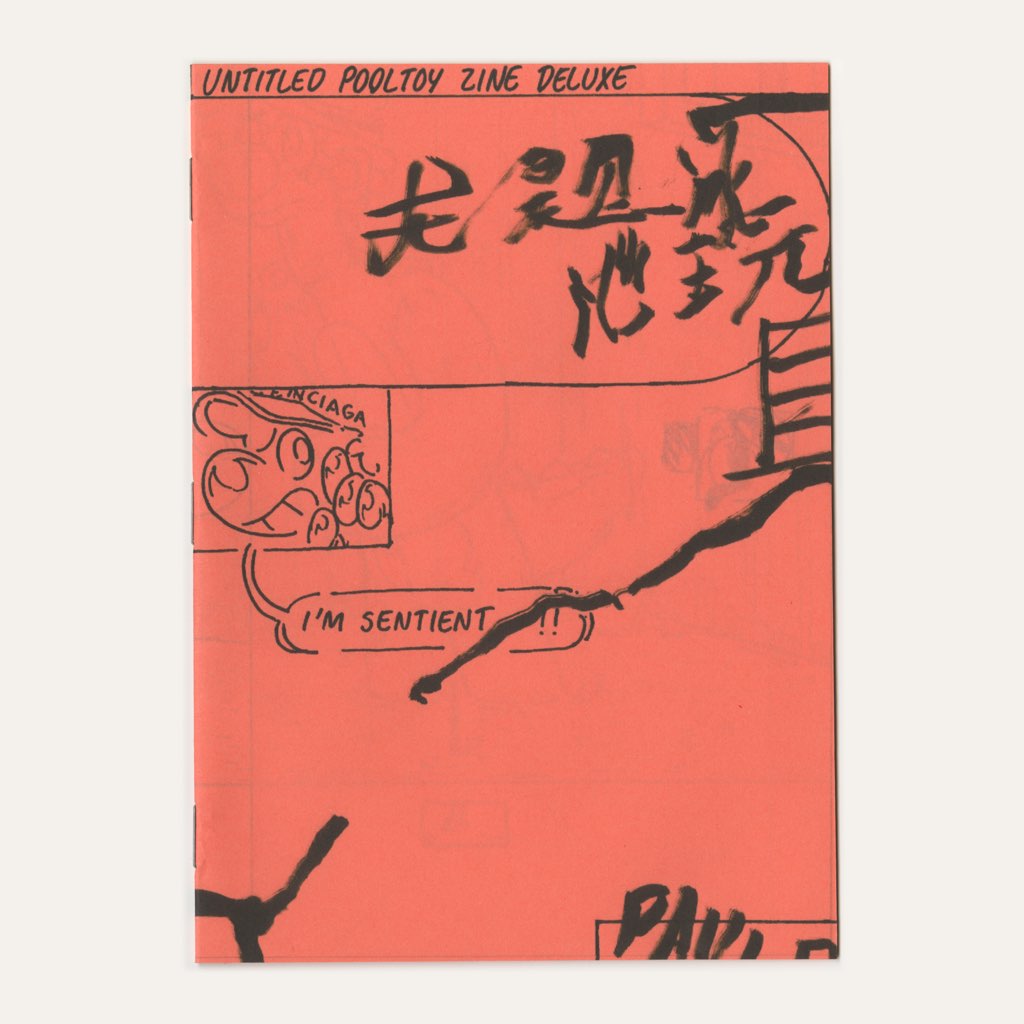 UNTITLED POOLTOY ZINE DELUXE
无题泳
池玩
具
ENCIAGA
I'M SENTIENT !!
PAUL